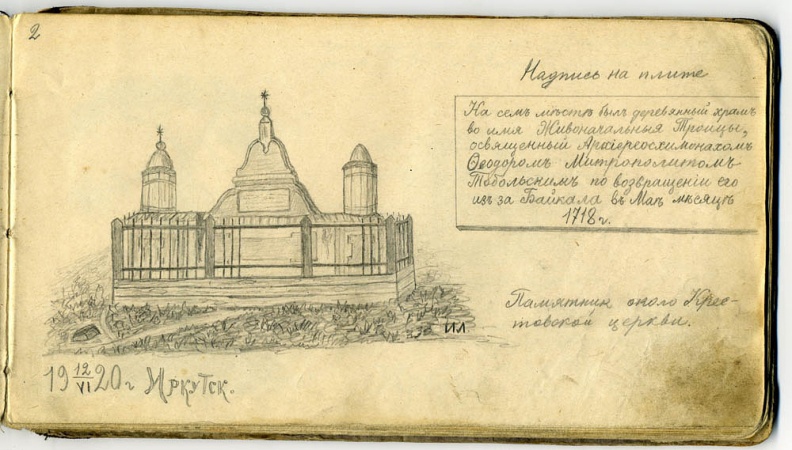 2
Надпись на плите
На семъ мѣстѣ былъ деревянный храмъ
во имя Живоначальныя Троицы,
освященный Архіереосхимонахомъ
Ѳеодоромъ Митрополитомъ
Тобольскимъ по возвращеніи его
изъ за Байкала въ Маѣ мѣсяцѣ
1718 г.
Памятник около Крес-
товской церкви.
ИЛ
19 12/VI 20 г Иркутск.